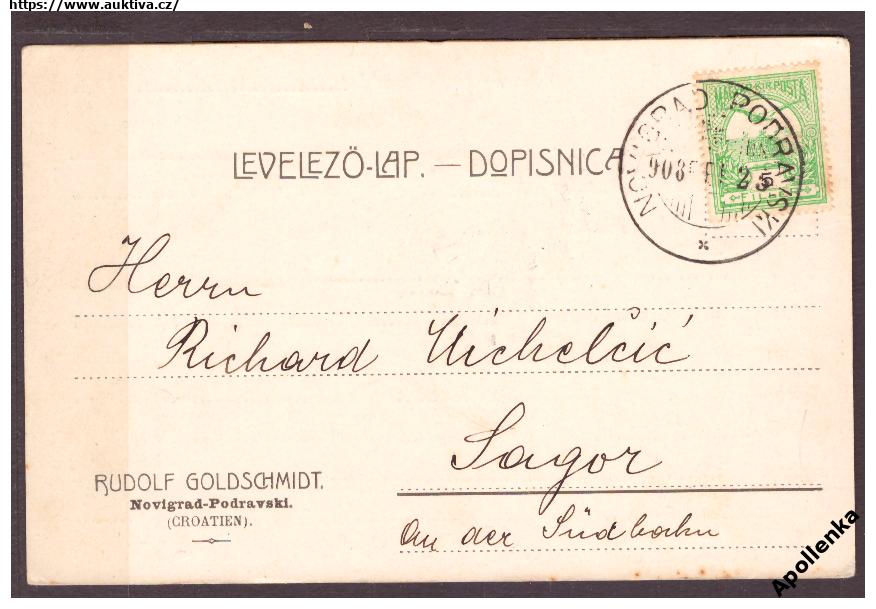 https://www.auktiva.cz/
LEVELEZÖ-LAP. — DOPISNICA
NOVIGRAD PODRAVSKI
908 FEB 25
MAGYAR KIR. POSTA
5
FILLÉR
Herrn
Richard Michelčić
Sagor
An der Südbahn
RUDOLF GOLDSCHMIDT.
Novigrad-Podravski.
(CROATIEN).
Apollenka